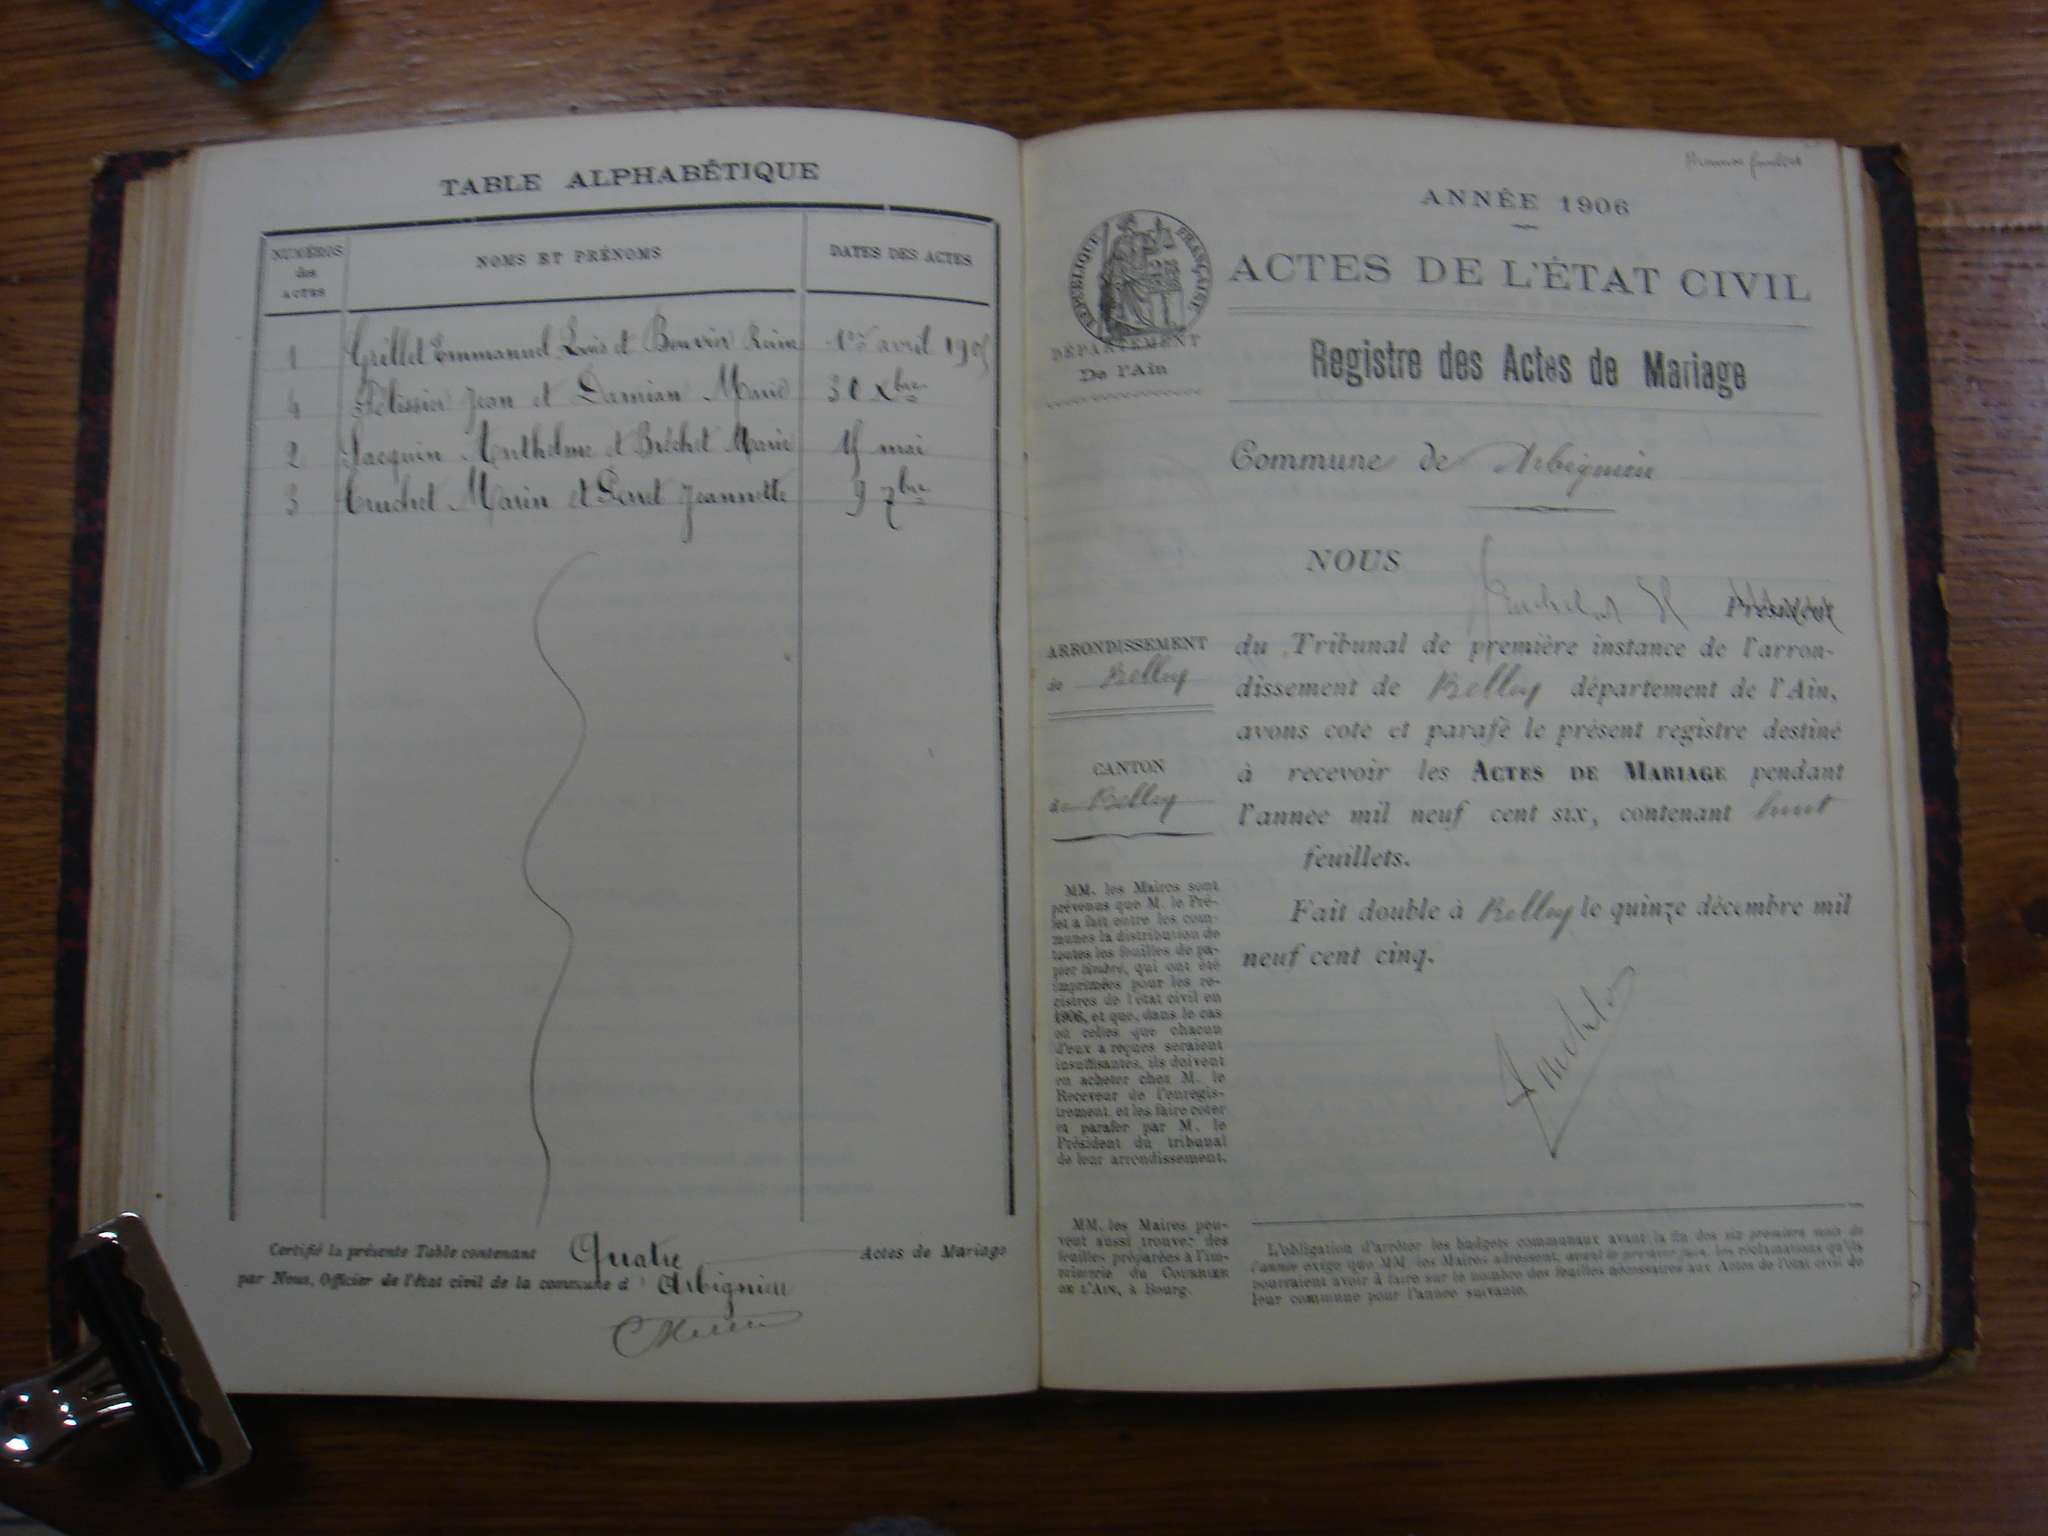 TABLE ALPHABÉTIQUE
NUMÉROS
des
ACTES
NOMS ET PRÉNOMS
DATES DES ACTES
1 Grillet Emmanuel Louis et Bouvier Reine 1er avril 1905
4 Pélissier Jean et Damian Marie 30 Xbre
2 Jacquin Anthelme et Bréchet Marie 15 mai
3 Truchet Marin et Perret Jeannette 9 7bre
Certifié la présente Table contenant Quatre Actes de Mariage
par Nous, Officier de l'état civil de la commune d' Arbignieu
Premier feuillet
ANNÉE 1906
ACTES DE L'ÉTAT CIVIL
RÉPUBLIQUE FRANÇAISE
DÉPARTEMENT
De l'Ain
Registre des Actes de Mariage
Commune de Arbignieu
NOUS
Président
du Tribunal de première instance de l'arron-
dissement de Belley département de l'Ain,
avons coté et parafé le présent registre destiné
à recevoir les ACTES DE MARIAGE pendant
l'année mil neuf cent six, contenant huit
feuillets.
Fait double à Belley le quinze décembre mil
neuf cent cinq.
ARRONDISSEMENT
de Belley
CANTON
de Belley
MM. les Maires sont
prévenus que M. le Pré-
fet a fait entre les com-
munes la distribution de
toutes les feuilles de pa-
pier timbré, qui ont été
imprimées pour les re-
gistres de l'état civil en
1906, et que, dans le cas
où celles que chacun
d'eux a reçues seraient
insuffisantes, ils doivent
en acheter chez M. le
Receveur de l'enregis-
trement, et les faire coter
et parafer par M. le
Président du tribunal
de leur arrondissement.
MM. les Maires peu-
vent aussi trouver des
feuilles préparées à l'im-
primerie du COURRIER
DE L'AIN, à Bourg.
L'obligation d'arrêter les budgets communaux avant la fin des six premiers mois de
l'année exige que MM. les Maires adressent, avant le premier juin, les réclamations qu'ils
pourraient avoir à faire sur le nombre des feuilles nécessaires aux Actes de l'état civil de
leur commune pour l'année suivante.